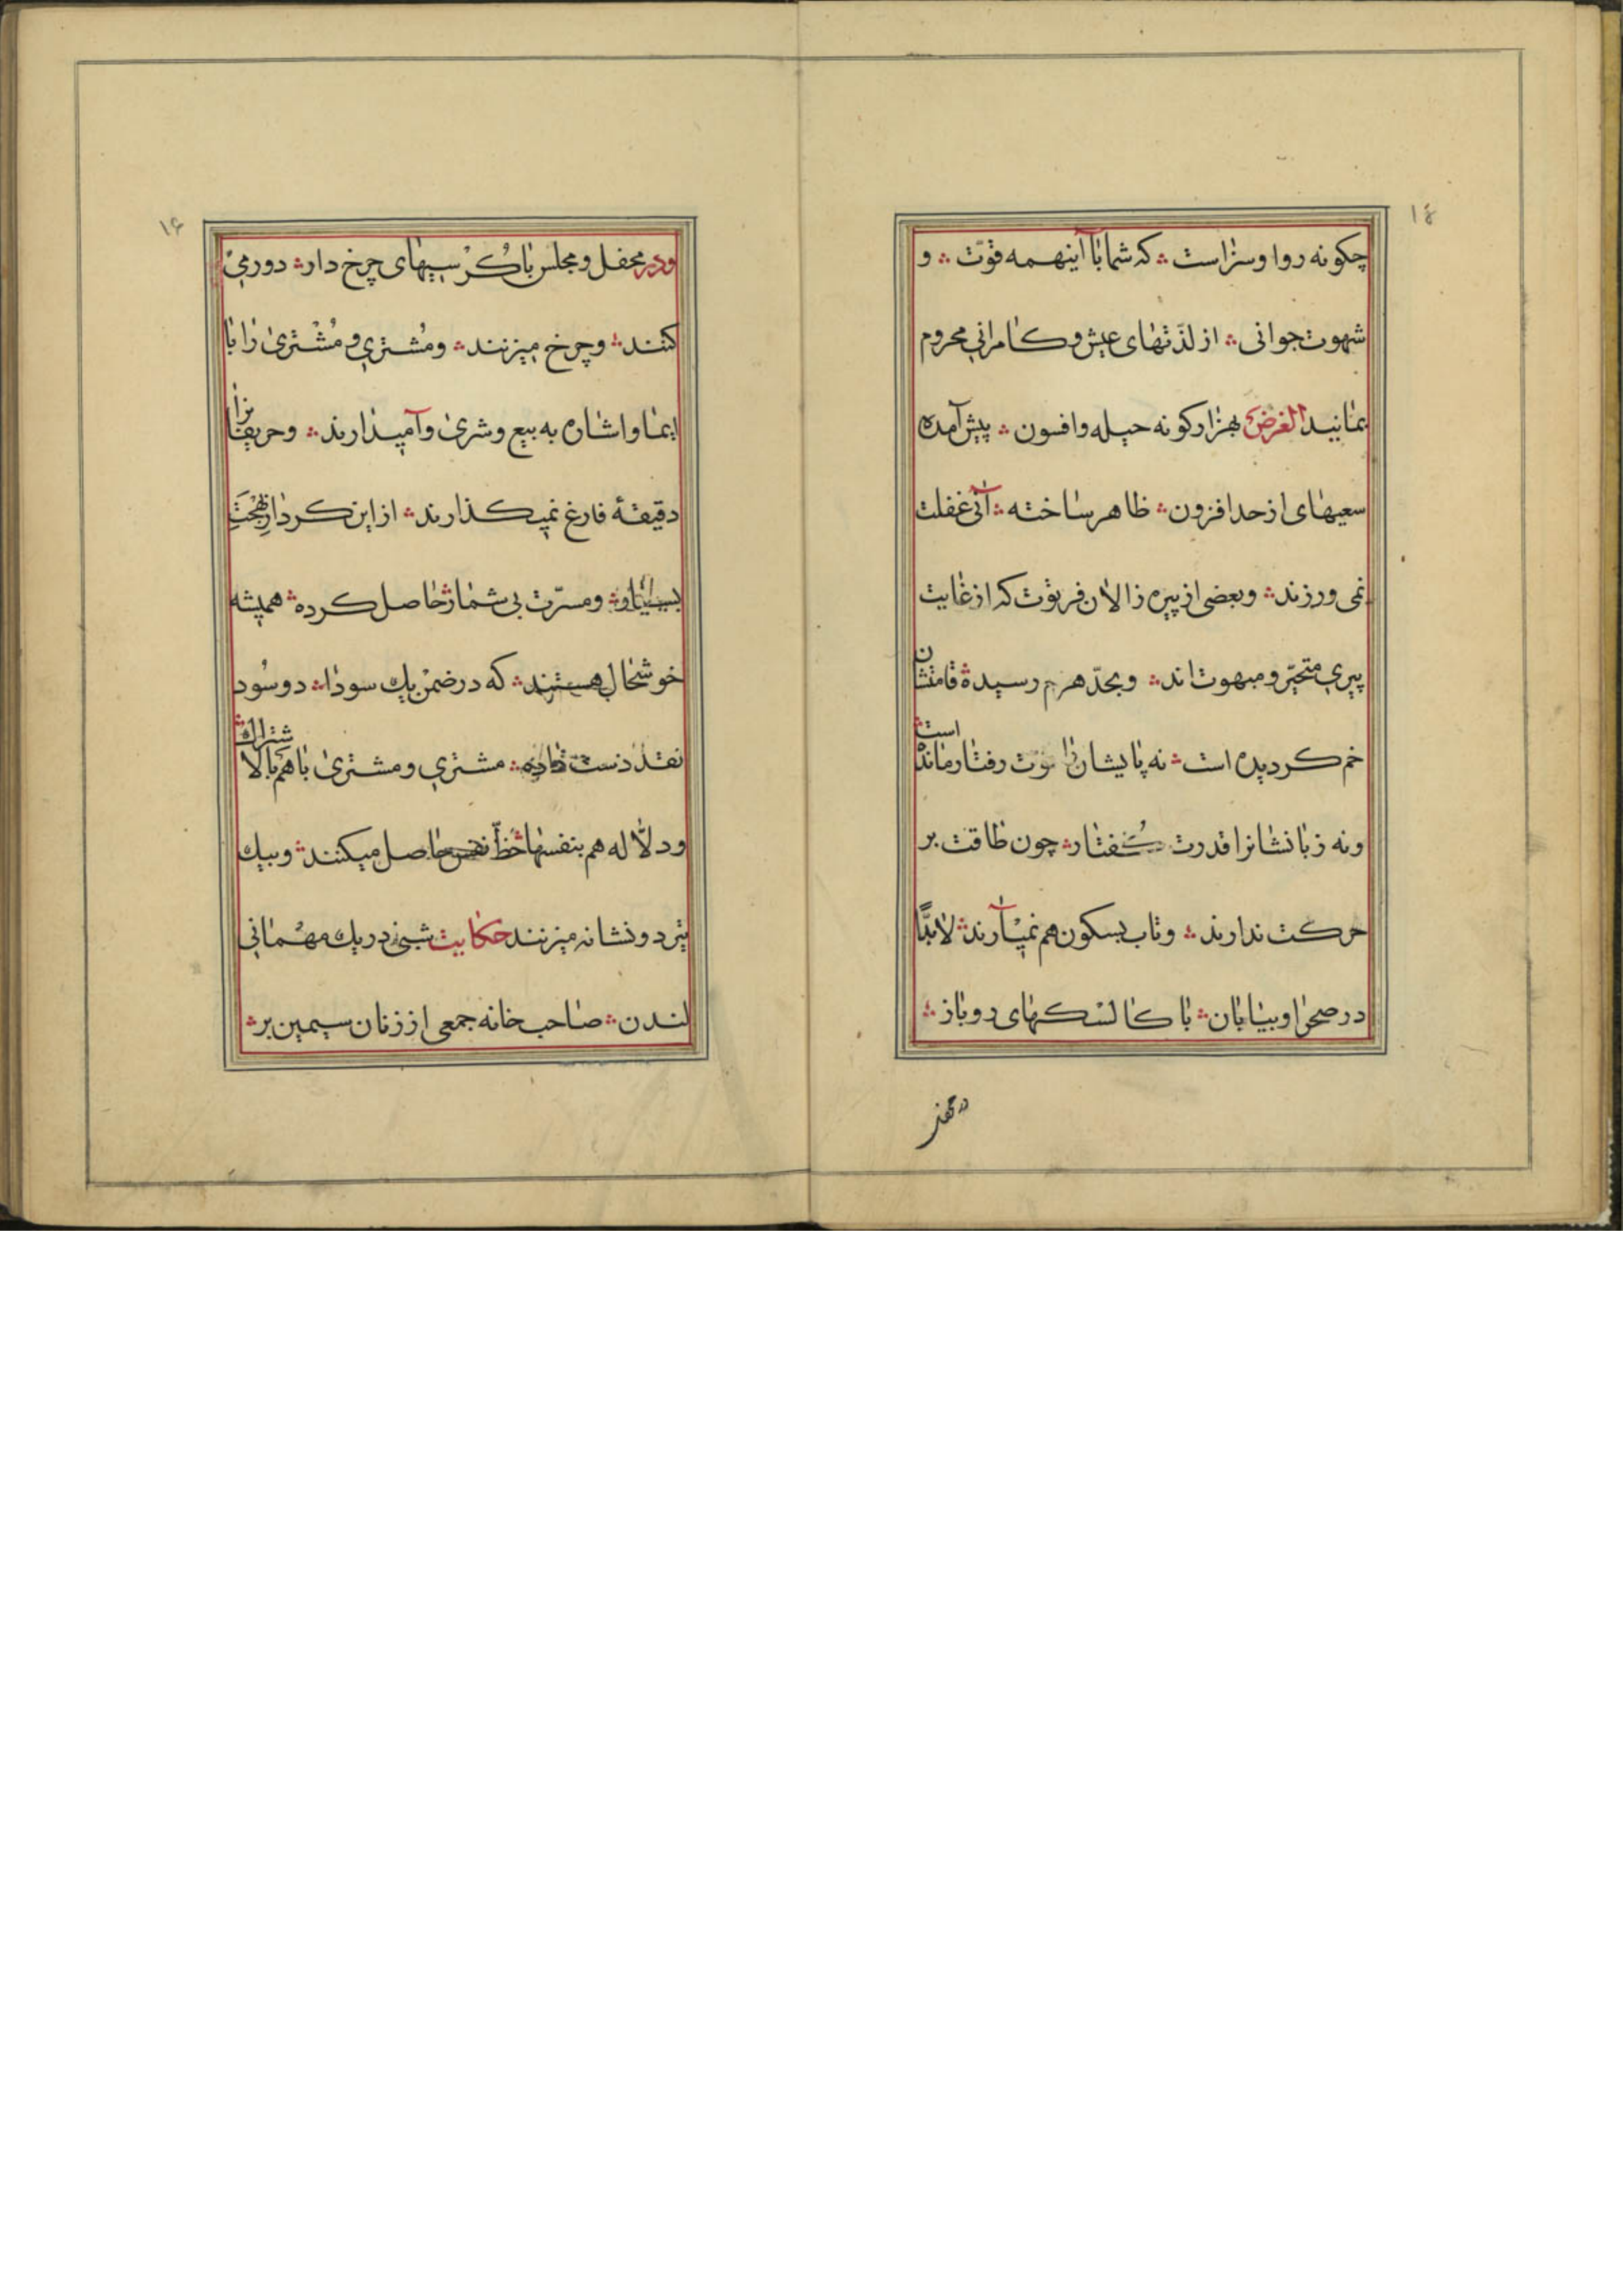 ۱۴
چکونه روا وسزاست ؞ که شما باآینهمه قوّت ؞ و
شهوت جوانی ؞ از لذّتهای عیش و کامرانی محروم
بمانید الغرض بهزار کونه حیله وافسون ؞ پیش آمده
سعیهای از حد افزون ؞ ظاهر ساخته ؞ آنی غفلت
نمی ورزند ؞ وبعضی از پیره زالان فرتوت که از غایت
پیری متحیّر و مبهوت اند ؞ وبحدّ هرم رسیده قامتشان
خم کردیده است ؞ نه پایشان را قوّت رفتار مانده است ؞
ونه زبانشانرا قدرت گفتار ؞ چون طاقت بر
حرکت ندارند ؞ وتاب بسکون هم نمیآرند ؞ لابدًّا
در صحرا وبیابان ؞ با کالسکهای دوباز ؞
۱۶
ودر محفل ومجلس با کُرْسیهای چرخ دار ؞ دور می
کنند ؞ وچرخ میزنند ؞ ومُشتری و مُشْتری را با
ایما واشاره به بیع وشری وآمیدارند ؞ وحریفانرا
دقیقهٔ فارغ نمیکذارند ؞ از این کردار بهْجَت
ومسرّت بی شمار حاصل کرده ؞ همیشه
خوشحال هستند ؞ که در ضمن یك سودا ؞ دو سُود
نقد دست داده ؞ مشتری ومشتری با هم بالاشتراك ؞
ودلّاله هم بنفسها حظّ نفس حاصل میکنند ؞ وبیك
تیر دو نشانه میزنند حکایت شبی در یك مهْمانی
لندن ؞ صاحب خانه جمعی از زنان سیمین بر ؞